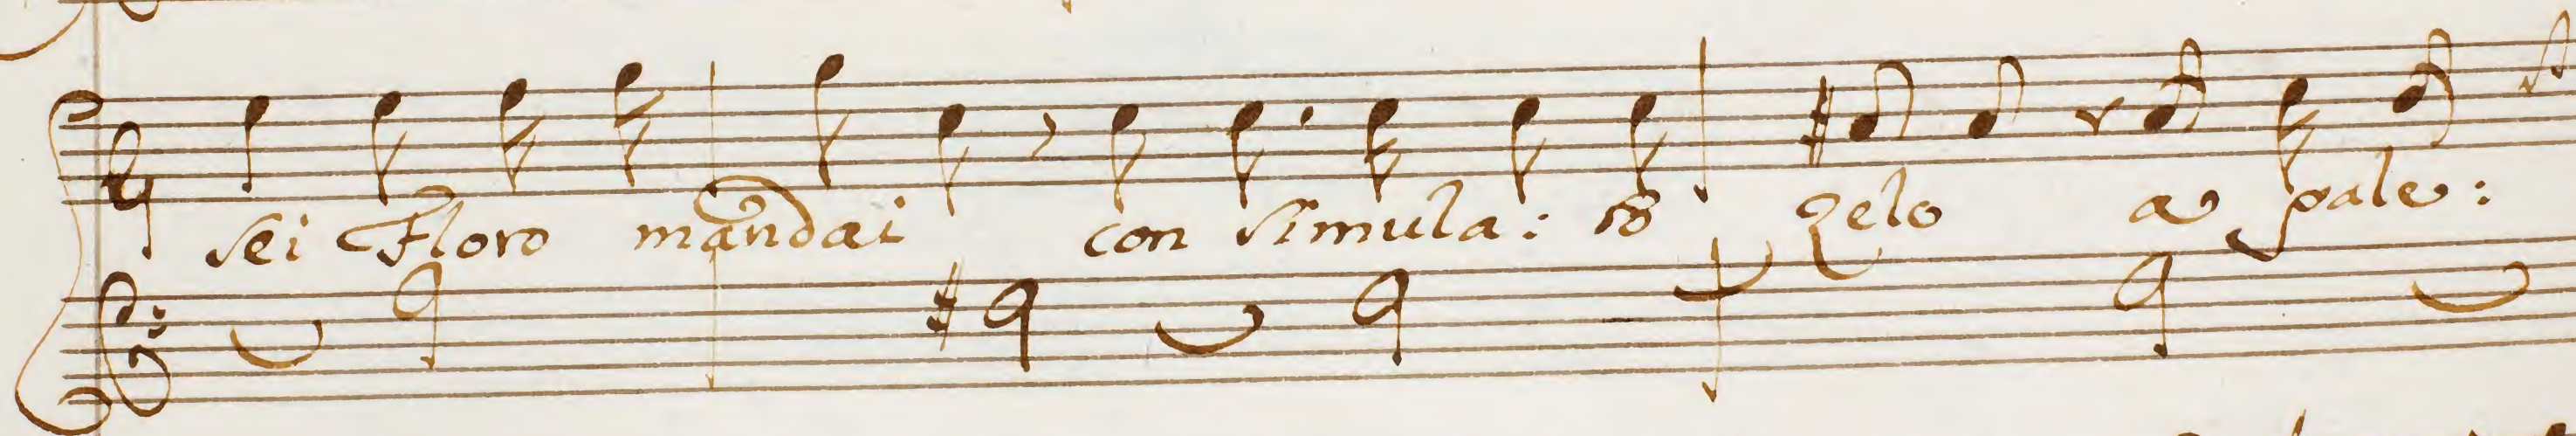 sei Floro mandai con simula: to zelo a pale: